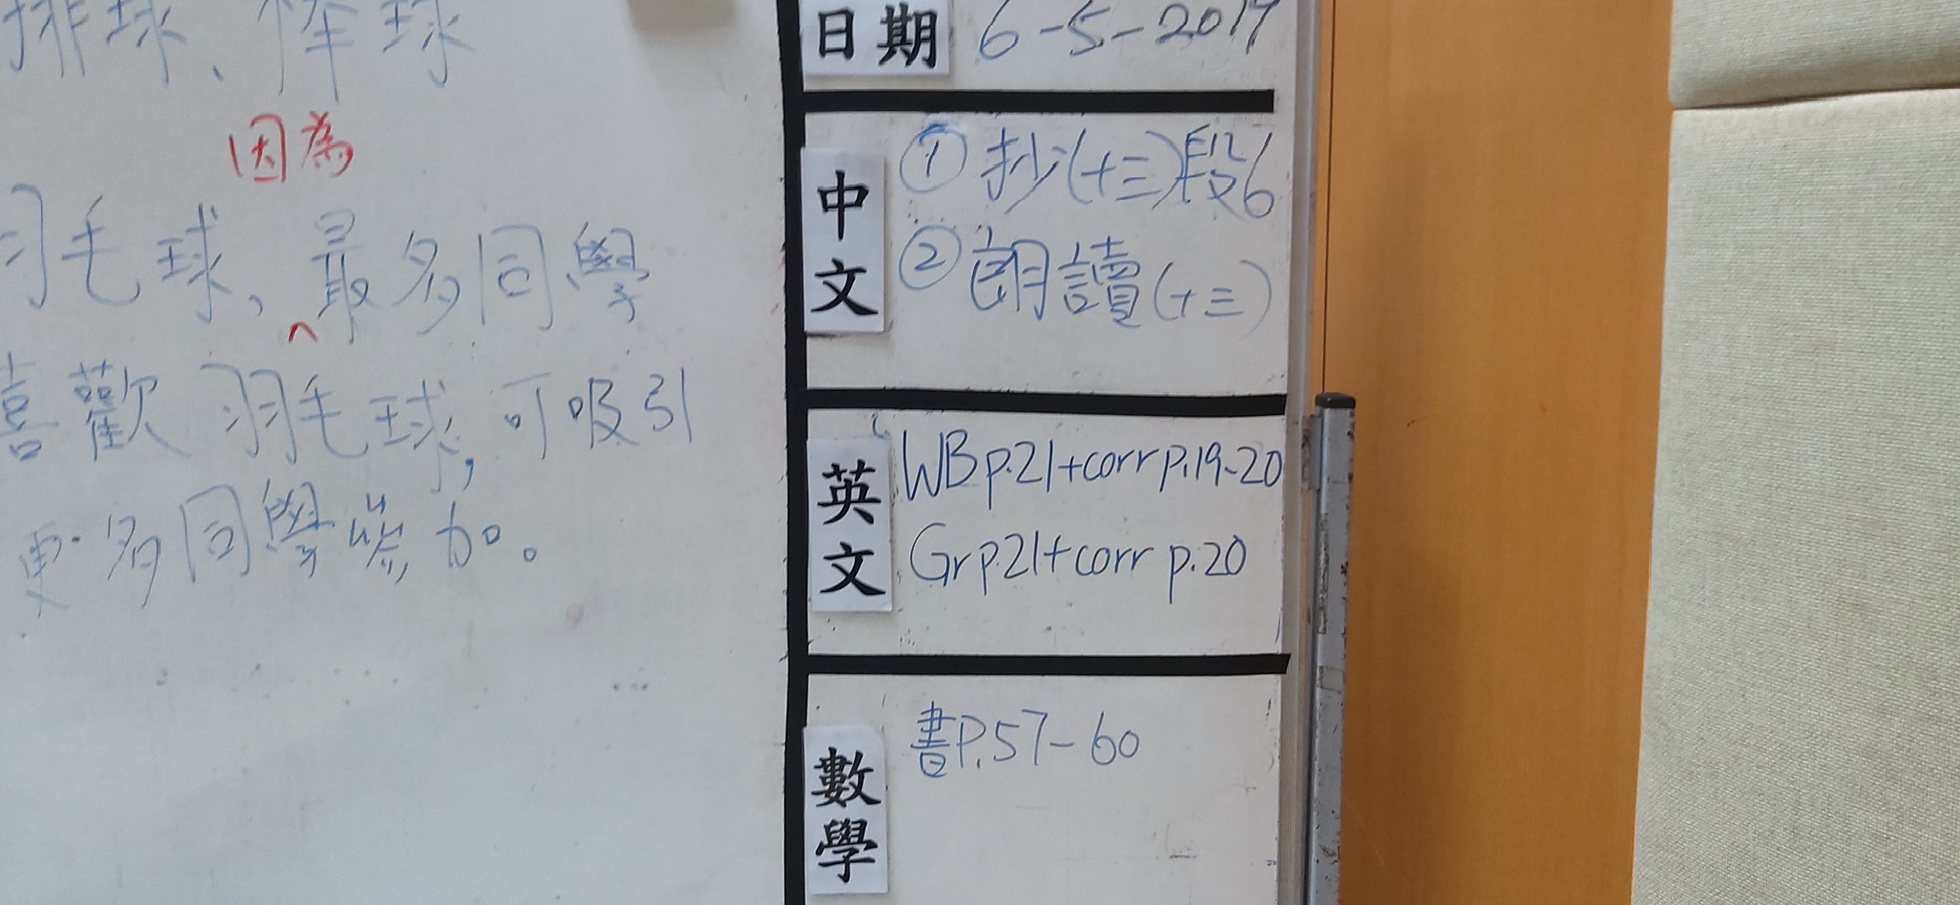 排球、棒球
因為
羽毛球、最多同學
喜歡羽毛球,可吸引
更多同學參加。
日期 6-5-2019
中文
① 抄(十三)段6
② 朗讀(十三)
英文
WB p.21+corr p.19-20
Gr p.21+corr p.20
數學
書P.57-60